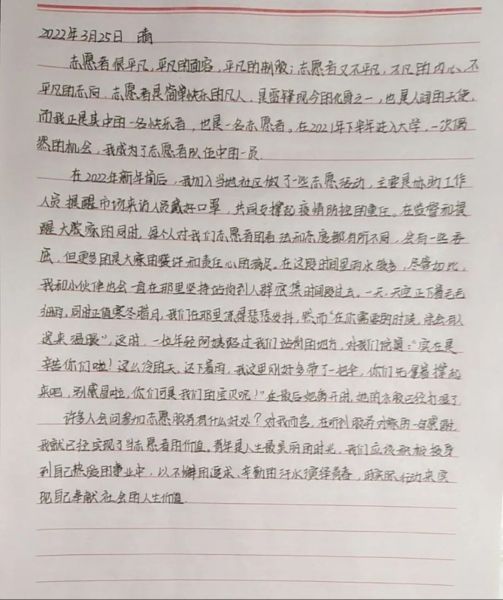 2022年3月25日 雨
志愿者很平凡，平凡的面容，平凡的制服；志愿者又不平凡，不凡的内心，不
平凡的志向，志愿者是简单快乐的凡人，是雷锋现今的化身之一，也是人间的天使，
而我正是其中的一名快乐者，也是一名志愿者。在2021年下半年进入大学，一次偶
然的机会，我成为了志愿者队伍中的一员.
在2022年新年前后，我加入当地社区做了一些志愿活动，主要是协助工作
人员提醒市场来访人员戴好口罩，共同支撑起疫情防控的责任。在监督和提
醒大家的同时，每个人对我们志愿者的看法和态度都有所不同，会有一些委
屈，但更多的是大家的赞许和责任心的满足。在这段时间里雨水较多，尽管如此，
我和小伙伴也会一直在那里坚持站岗到人群密集时间段过去。一天，天空正下着毛毛
细雨，同时正值寒冬腊月，我们在那里冻得瑟瑟发抖，然而"在你需要的时候，总会有人
送来温暖"，这时，一位年轻阿姨路过我们站岗的地方，对我们说道："实在是
辛苦你们啦！这么冷的天，还下着雨，我这里刚好多带了一把伞，你们先拿着撑起
来吧，别感冒啦，你们可是我们的宝贝呢！"在最后她离开时，她的衣服已经打湿了
许多人会问参加志愿服务有什么好处？对我而言，在听到服务对象的一句感谢，
我就已经实现了当志愿者的价值。青年是人生最美丽的时光，我们应该积极投身
到自己热爱的事业中，以不懈的追求、辛勤的汗水演绎青春，用实际行动来实
现自己奉献社会的人生价值.